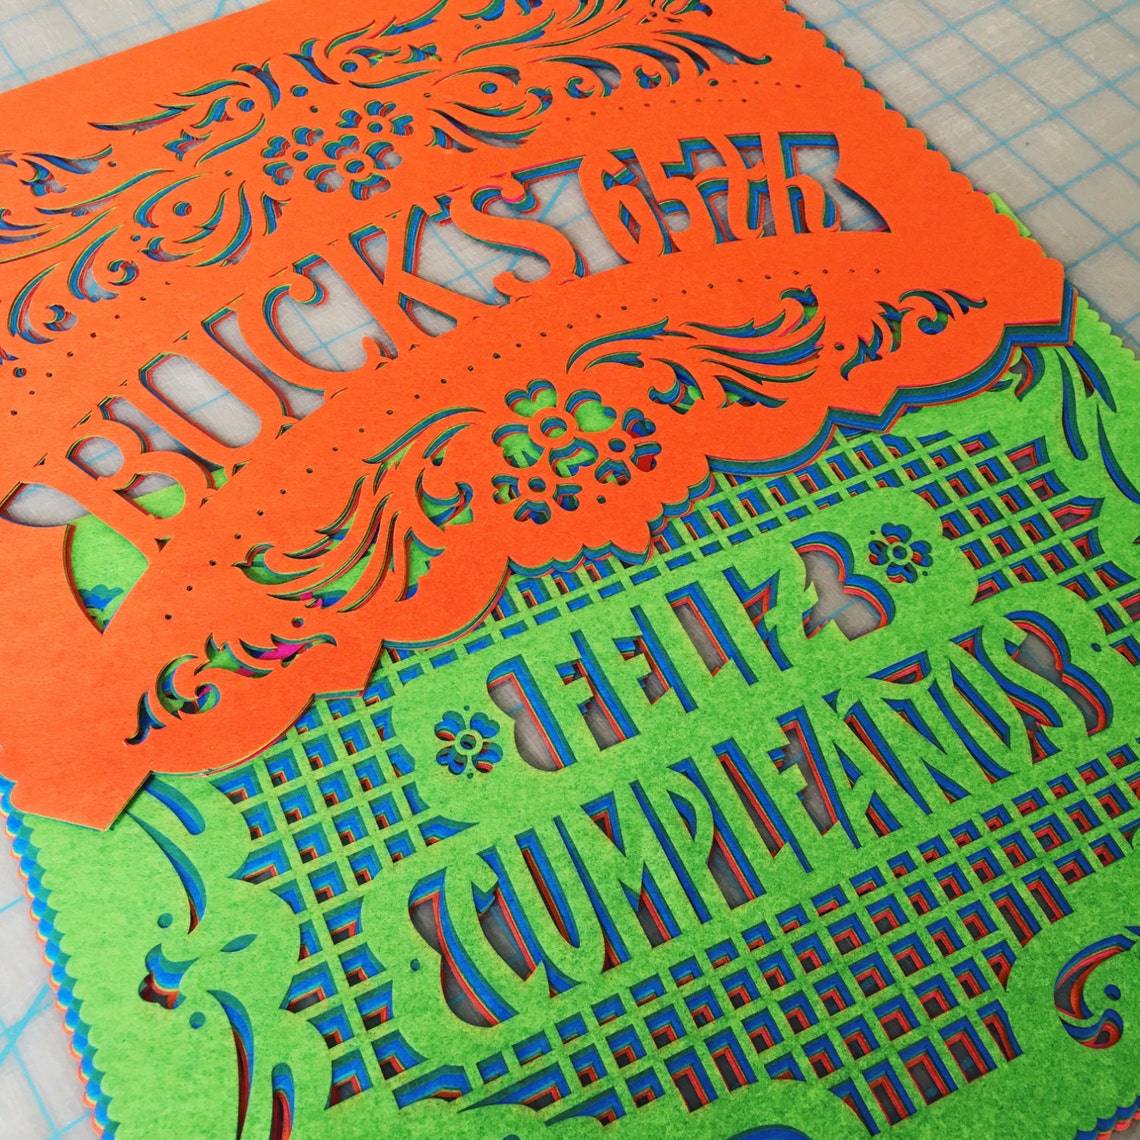 BUCK'S 65th
FELIZ
CUMPLEAÑOS